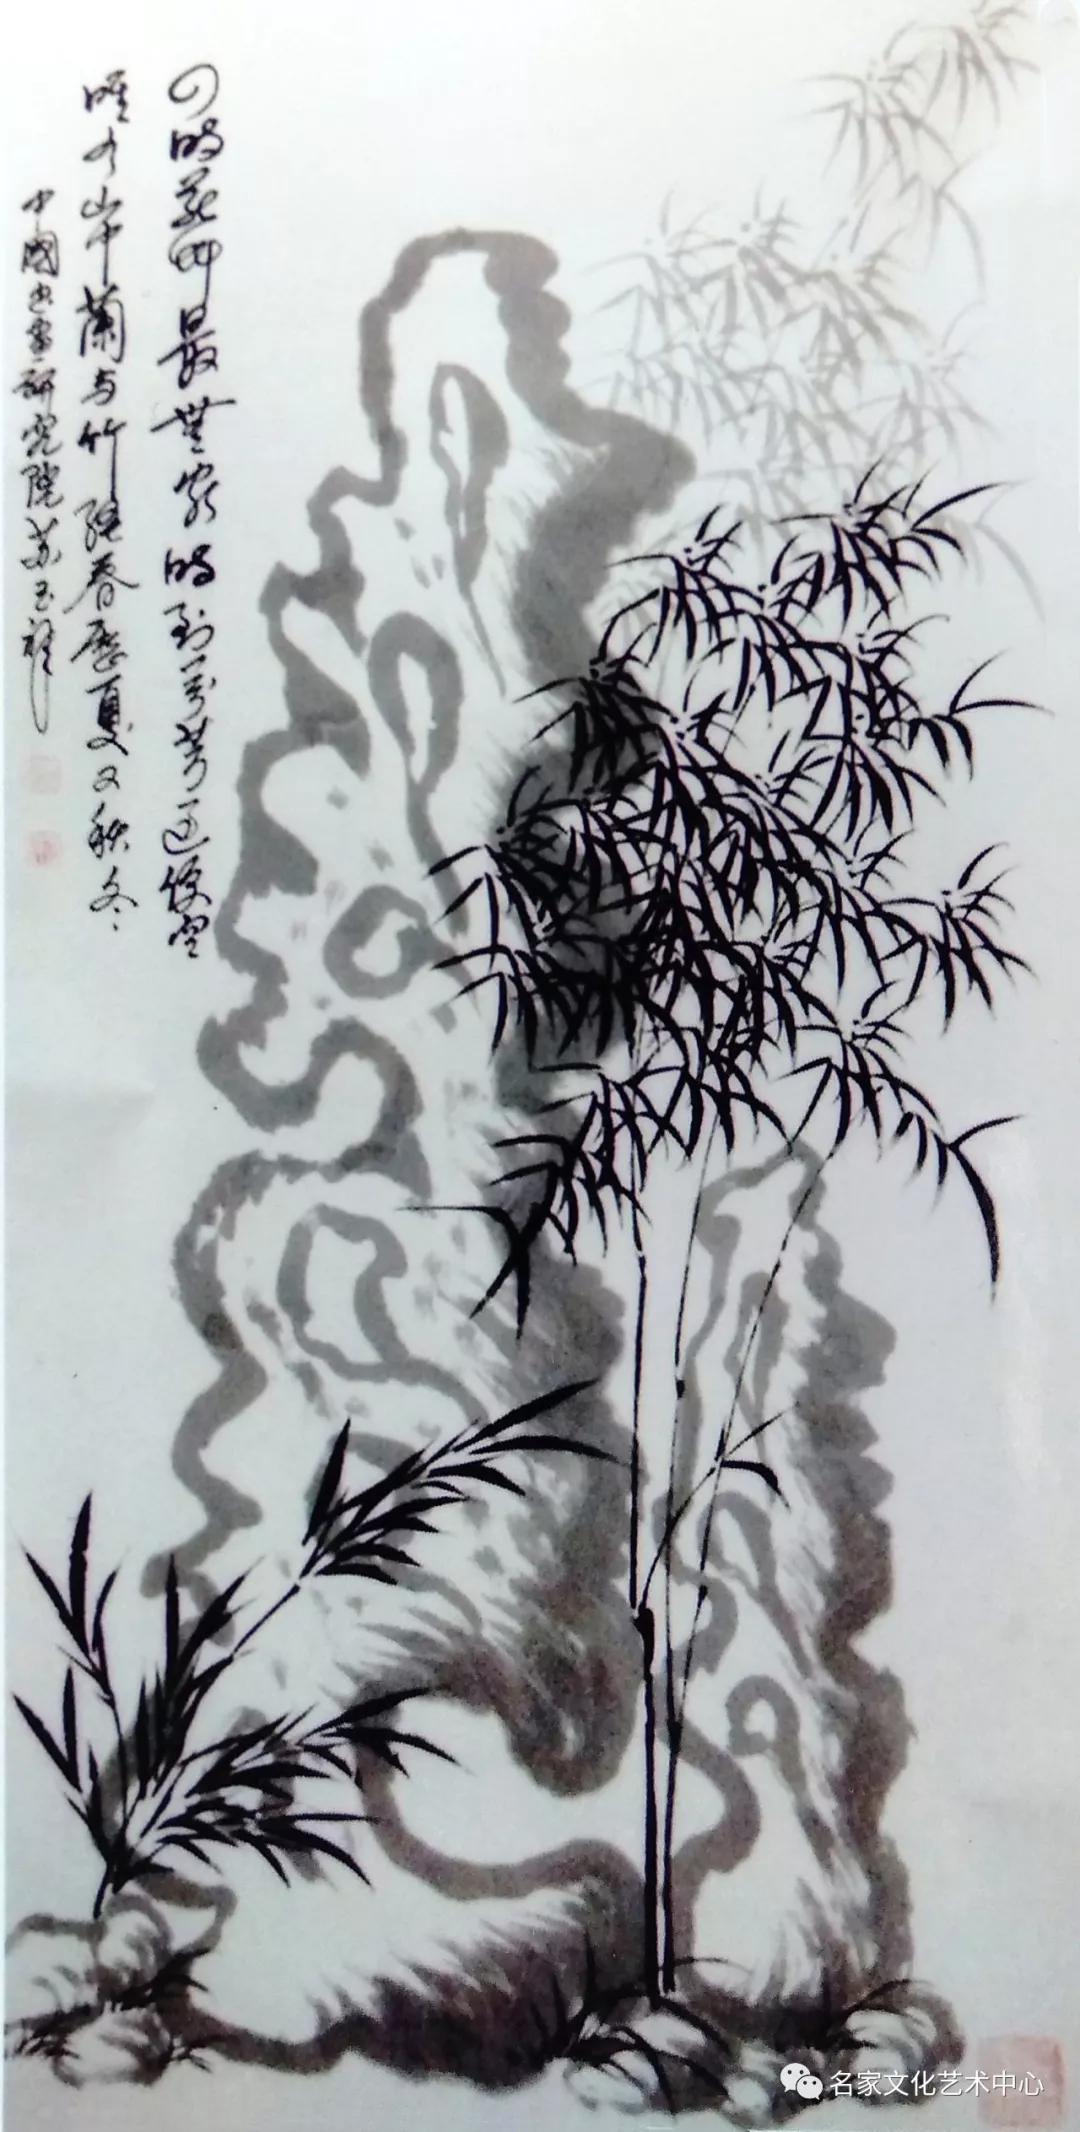 四时花草最无穷时到芬芳过便空
唯有山中兰与竹经春历夏又秋冬
中國书画研究院苏玉禎
名家文化艺术中心